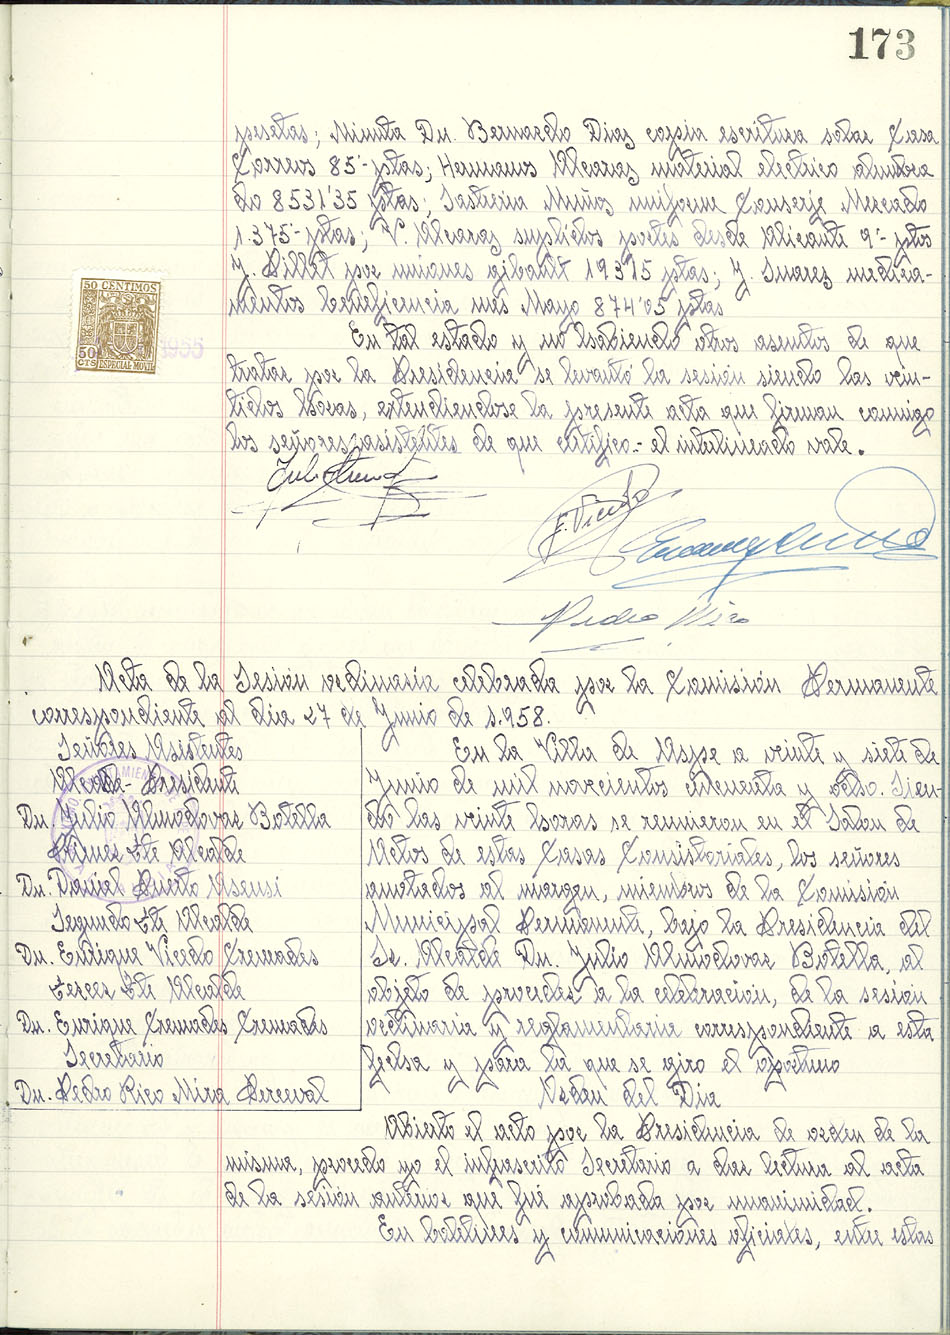 173
pesetas; Minuta Dn. Bernardo Diaz copia escritura solar Casa
Correos 85'- ptas; Hermanos Alvarez material electrico alumbra
do 8531'35 ptas; Sastreria Muñoz uniforme Conserje Mercado
1.375'- ptas; V. Alvarez suplidos portes desde Alicante 9'- ptas
J. Billet por uniones gibault 193'15 ptas; J. Suarez medica-
mentos beneficencia mes Mayo 874'05 ptas
En tal estado y no habiendo otros asuntos de que
tratar por la Presidencia se levantó la sesión siendo las vein-
tidos horas, extendiendose la presente acta que firman conmigo
los señores asistentes de que certifico.- el interlineado vale.
50 CENTIMOS
50 CTS ESPECIAL MOVIL
1955
E. Vicedo
Pedro Rico
Acta de la Sesión ordinaria celebrada por la Comisión Permanente
correspondiente al dia 27 de Junio de 1.958.
Señores Asistentes
Alcalde-Presidente
Dn Julio Almodovar Botella
Primer Tte Alcalde
Dn. Daniel Puerto Asensi
Segundo Tte Alcalde
Dn. Enrique Vicedo Cremades
Tercer Tte Alcalde
Dn. Enrique Cremades Cremades
Secretario
Dn. Pedro Rico Mira Perceval
En la Villa de Aspe a veinte y siete de
Junio de mil novecientos cincuenta y ocho. Sien-
do las veinte horas se reunieron en el Salon de
Actos de estas Casas Consistoriales, los señores
anotados al margen, miembros de la Comisión
Municipal Permanente, bajo la Presidencia del
Sr. Alcalde Dn. Julio Almodovar Botella, al
objeto de proceder a la celebracion, de la sesión
ordinaria y reglamentaria correspondiente a esta
fecha y para la que se giro el oportuno
Orden del Dia
Abierto el acto por la Presidencia de orden de la
misma, procedo yo el infrascrito Secretario a dar lectura al acta
de la sesión anterior que fué aprobada por unanimidad.
En boletines y comunicaciones oficiales, entre estas